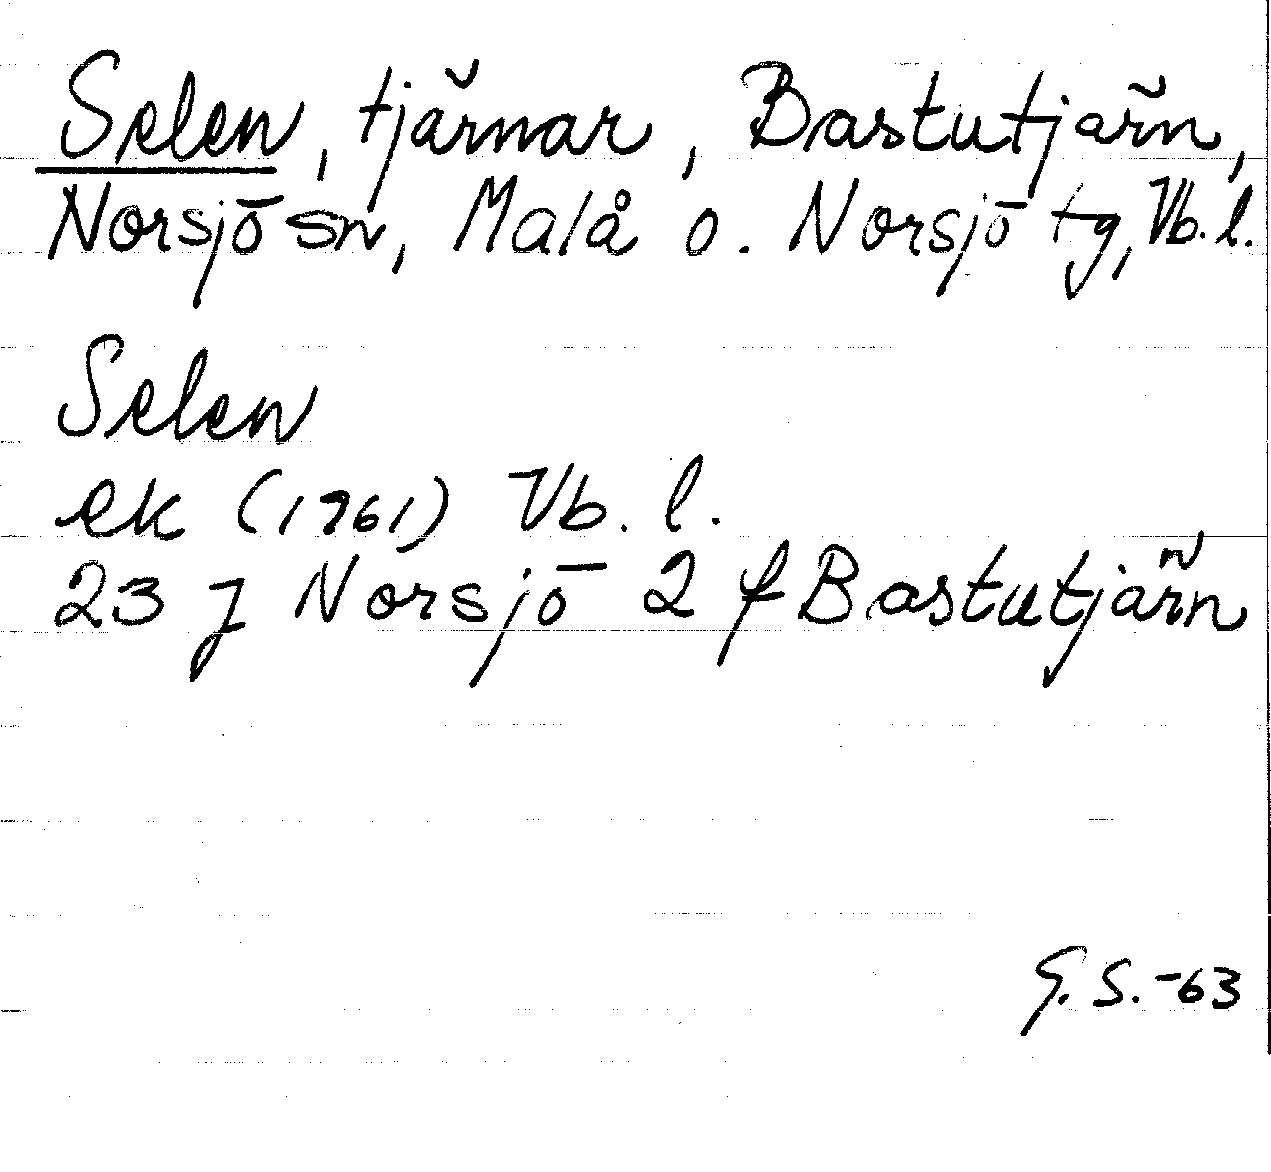 Selen, tjärnar, Bastutjärn,
Norsjö sn, Malå o. Norsjö tg, Vb. l.
Selen
ek (1961) Vb. l.
23 J Norsjö 2 f Bastutjärn
G. S. -63